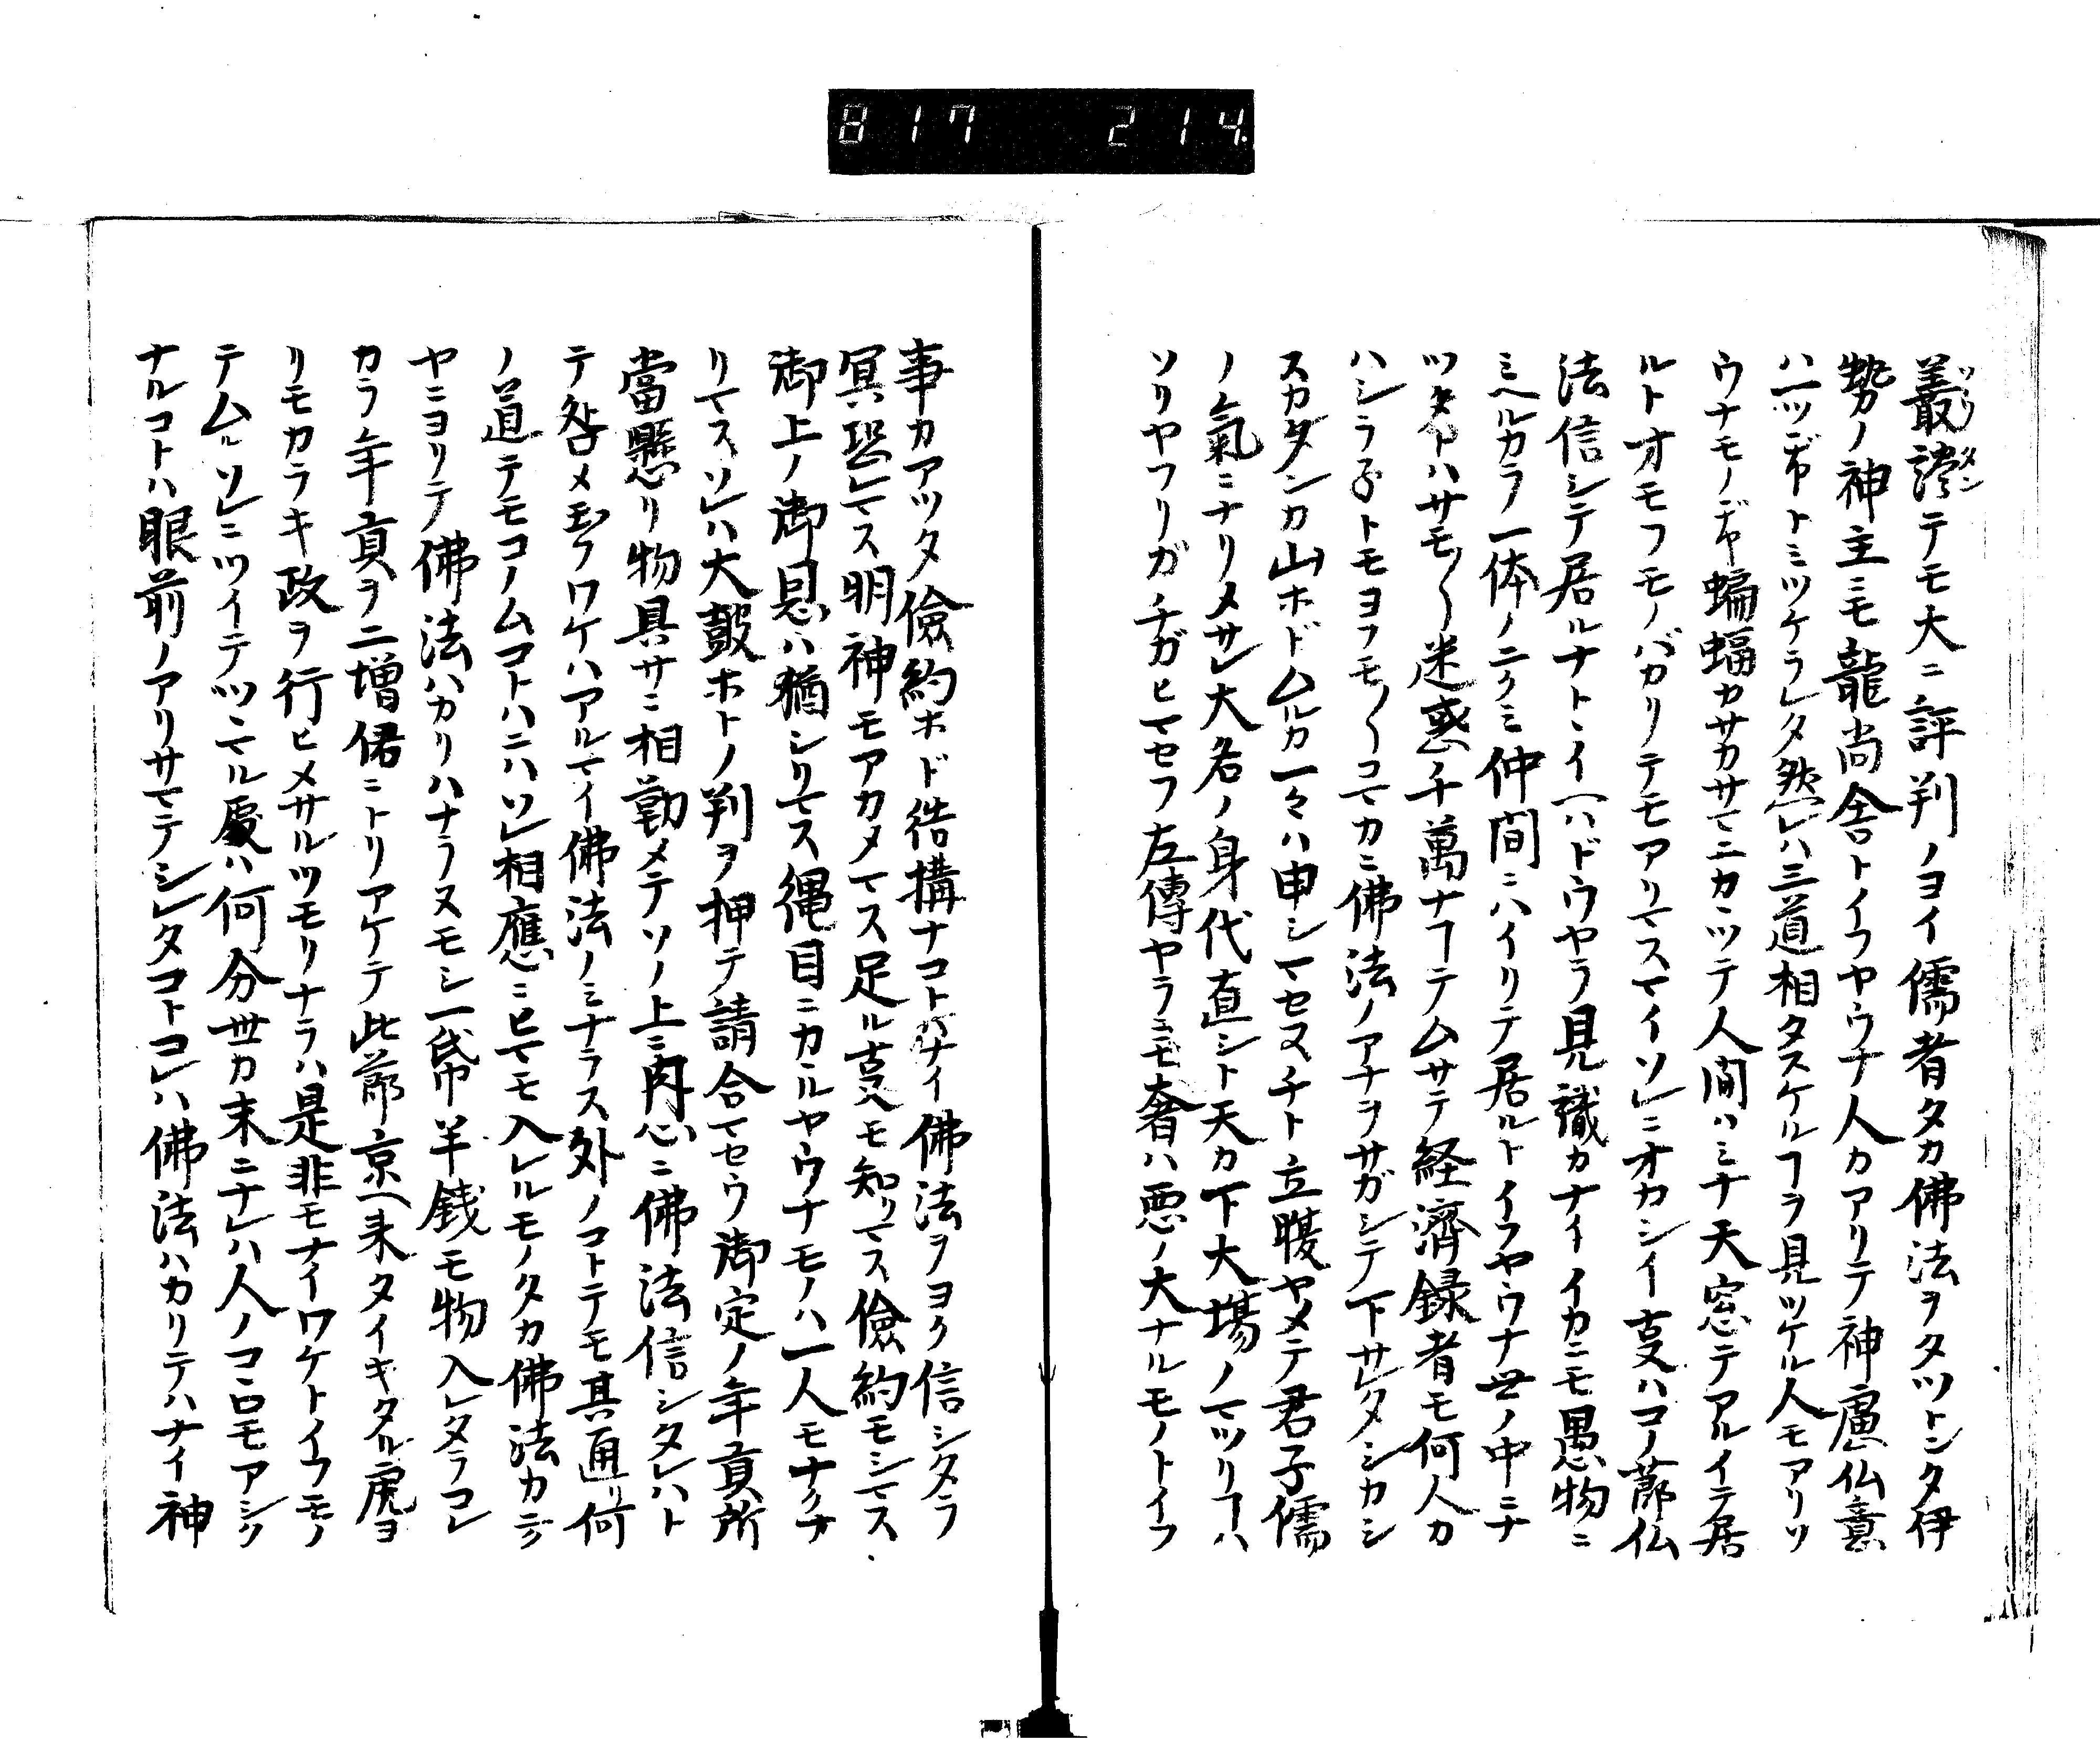 8 17 214
叢談テモ大ニ評判ノヨイ儒者タカ佛法ヲタツトンタ伊
勢ノ神主ニモ龍尚舎トイフヤウナ人カアリテ神慮仏意
ハ一ツヂヤトミツケラレタ然レハ三道相タスケルヿヲ見ツケル人モアリソ
ウナモノヂヤ蝙蝠カサカサマニカヽツテ人間ハミナ天窓テアルイテ居
ルトオモフモノバカリテモアリマスマイソレニオカシイ叓ハコノ節仏
法信シテ居ルナトヽイヘハドウヤラ見識カナイイカニモ愚物ニ
ミヘルカラ一体ノニクミ仲間ニハイリテ居ルトイフヤウナ世ノ中ニナ
ツタトハサモ〳〵迷惑ノ千萬ナヿテムサテ経濟録者モ何人カ
ハシラ子トモヨフモ〳〵コマカニ佛法ノアナヲサガシテ下サレタシカシ
スカタンカ山ホドムルカ一々ハ申シマセヌチト立腹ヤメテ君子儒
ノ氣ニナリメサレ大名ノ身代直シト天カ下大場ノマツリヿハ
ソリヤフリガチガヒマセフ左傳ヤラニモ奢ハ悪ノ大ナルモノトイフ
事カアツタ儉約ホド結構ナコトハナイ佛法ヲヨク信シタラ
冥恐レマス明神モアカメマス足ル叓モ知リマス儉約モシマス
御上ノ御恩ハ猶シリマス縄目ニカヽルヤウナモノハ一人モナクナ
リマスソレハ大鼓ホトノ判ヲ押テ請合マセウ御定ノ年貢所
當懸リ物具サニ相勤メテソノ上ニ内心ニ佛法信シタレハト
テ咎メ玉フワケハアルマイ佛法ノミナラス外ノコトテモ其通リ何
ノ道テモコノムコトハニハソレ相應ニヒマモ入レルモノタカ佛法カラ
ヤニヨリテ佛法ハカリハナラヌモシ一帋半銭モ物入レタラコレ
カラ年貢ヲ二増倍ニトリアケテ此節京ヘ来タイキタル虎ヨ
リモカラキ政ヲ行ヒメサルツモリナラハ是非モナイワケトイフモノ
テムルソレニツイテツヽマル處ハ何分世カ末ニナレハ人ノコヽロモアシク
ナルコトハ眼前ノアリサマテシレタコトコレハ佛法ハカリテハナイ神